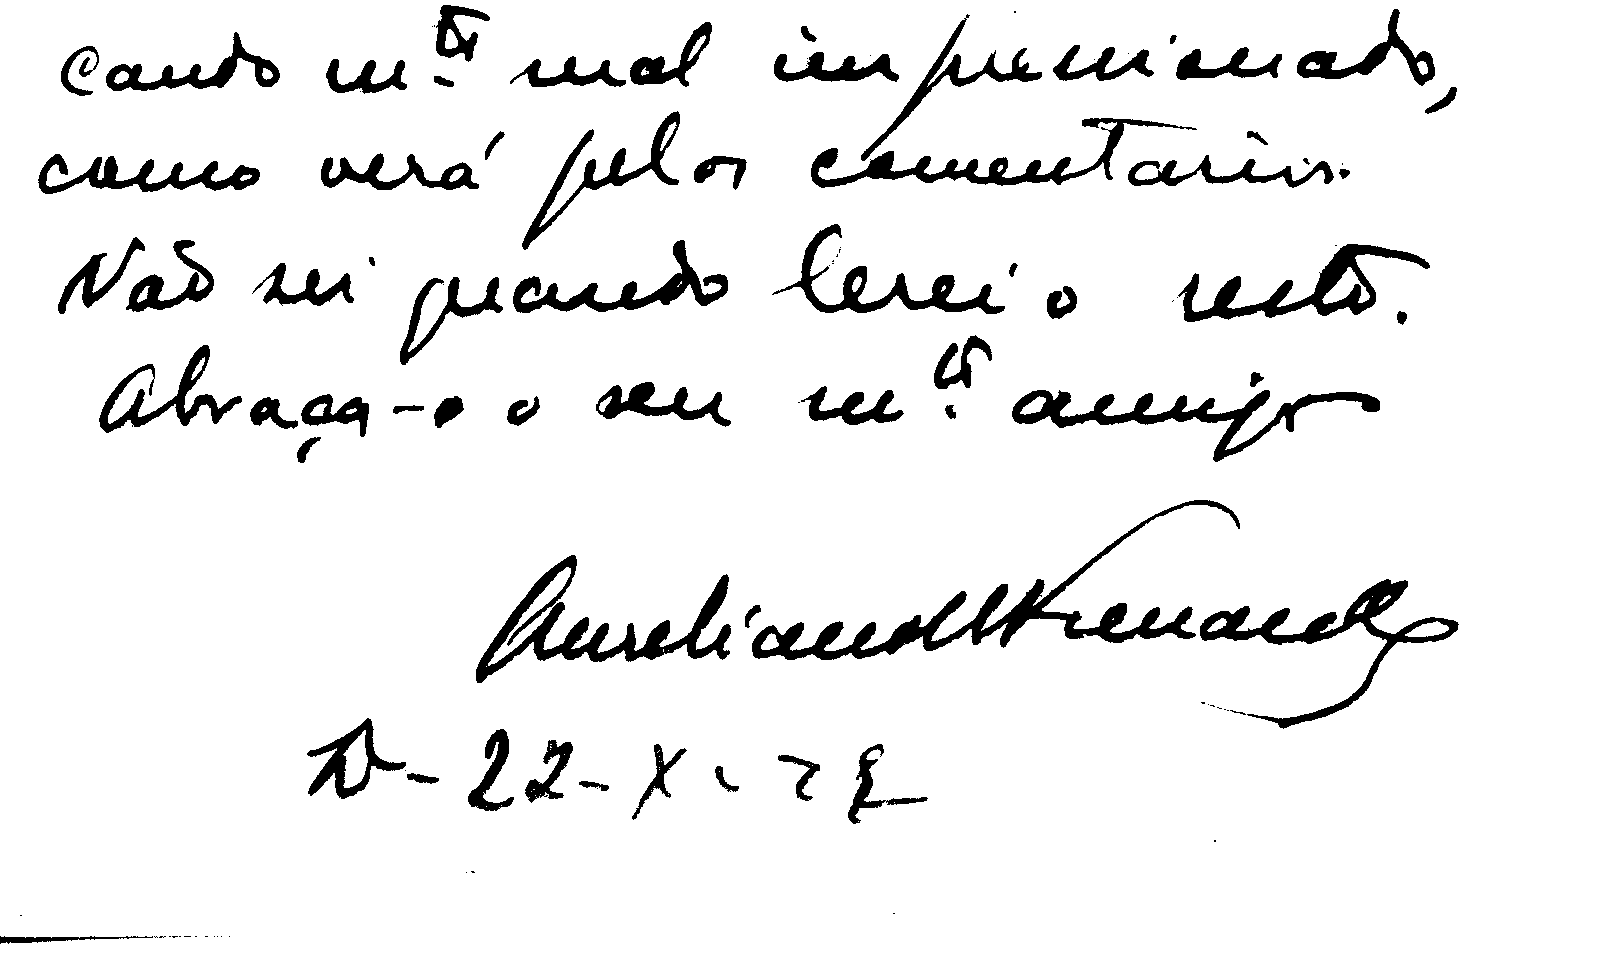 cando m.to mal impressionado,
como verá pelos comentarios.
Não sei quando lerei o resto.
Abraça-o o seu m.to amigo
Aureliano Mira Fernandes
22-X-